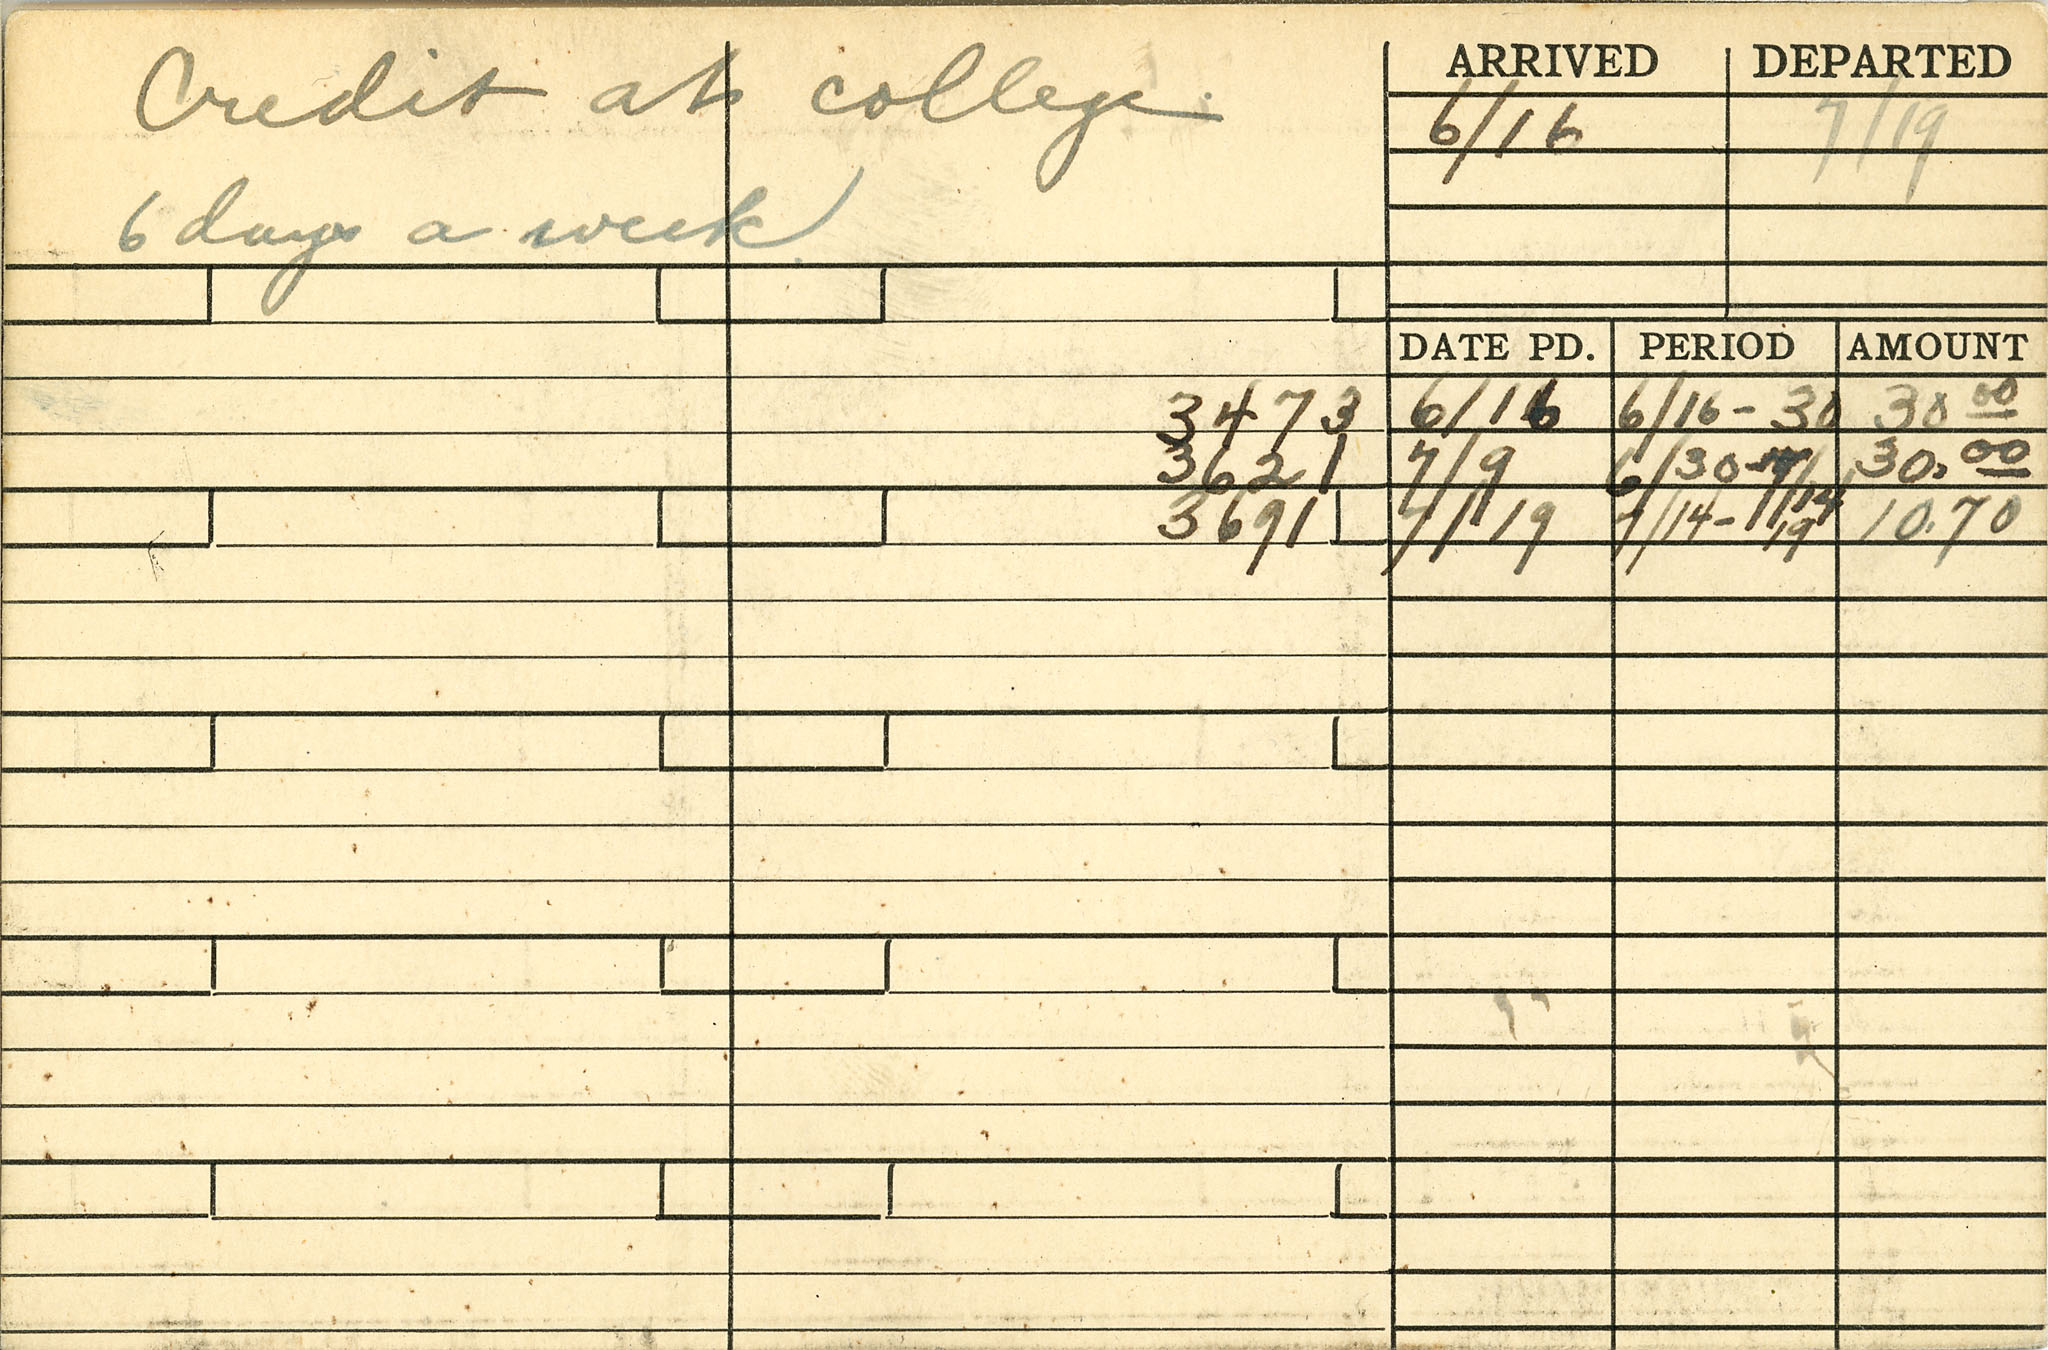 Credit at college.
6 days a week
ARRIVED DEPARTED
6/16 7/19
DATE PD. PERIOD AMOUNT
3473 6/16 6/16-30 30 00
3621 7/9 6/30-7/14 30.00
3691 7/19 7/14-19 10.70